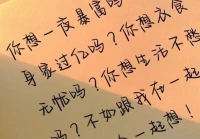 你想一夜暴富吗
身家过亿吗？你想衣食
无忧吗？你想生活不愁
吗？不如跟我在一起
一起想！